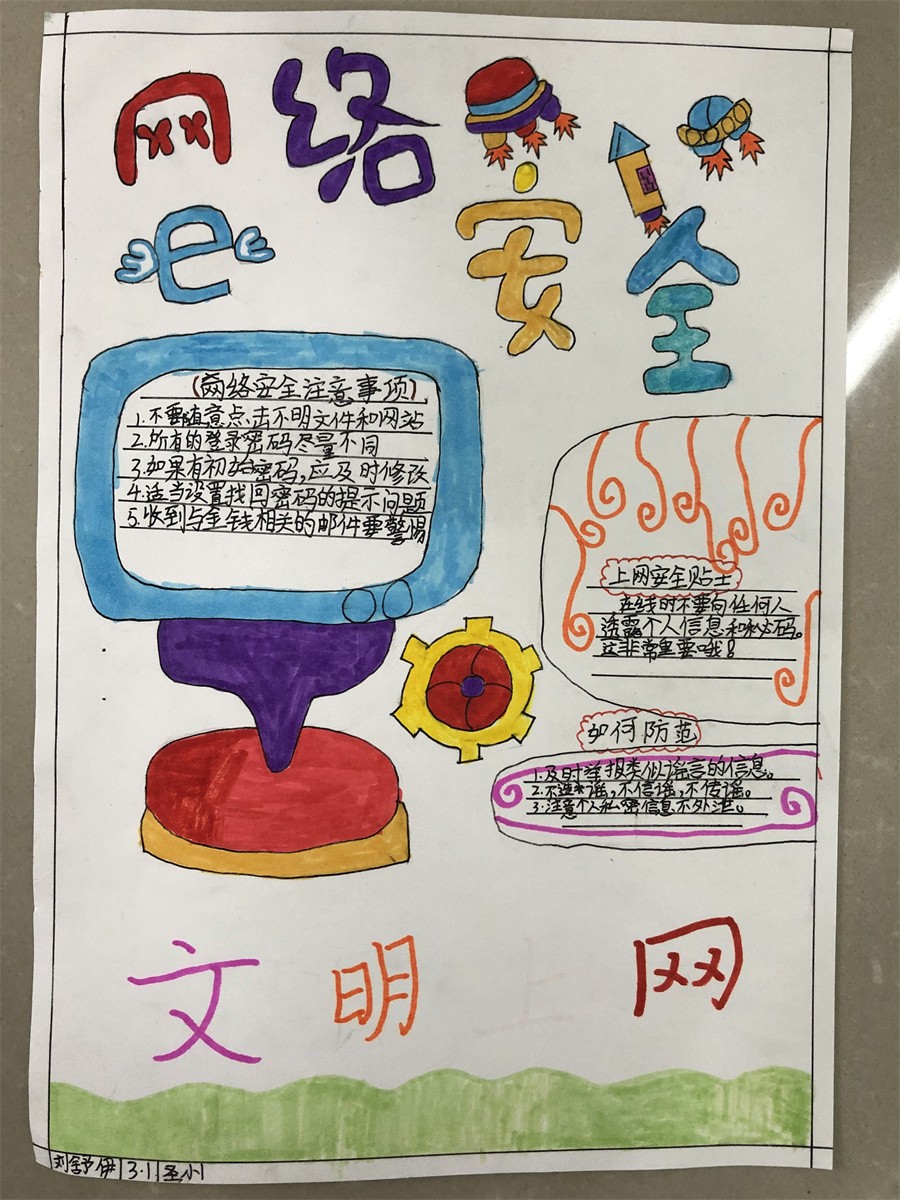 网络安全
e
(网络安全注意事项)
1.不要随意点击不明文件和网站
2.所有的登录密码尽量不同
3.如果有初始密码,应及时修改
4.适当设置找回密码的提示问题
5.收到与金钱相关的邮件要警惕
上网安全贴士
在线时不要向任何人
透露个人信息和秘码。
这非常重要哦!
如何防范
1.及时举报类似谣言的信息。
2.不造谣,不信谣,不传谣。
3.注意个人私密信息不外泄。
文明上网
刘舒伊 3.1 圣小